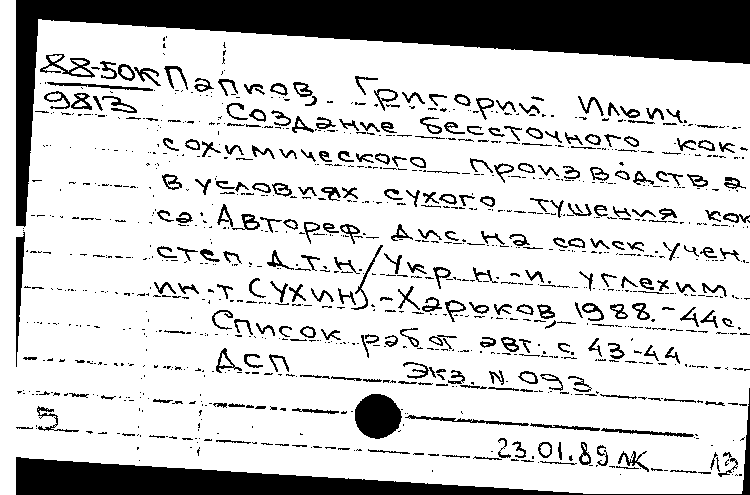 88-50К Папков, Григорий Ильич.
9813 Создание бессточного кок-
сохимического производства
в условиях сухого тушения кок
са: Автореф. дис. на соиск. учен.
степ. д.т.н./Укр н.-и. углехим.
ин-т (УХИН).-Харьков, 1988.-44с.
Список работ авт.: с. 43-44
ДСП Экз. N 093
5
23.01.89 ЛК 13